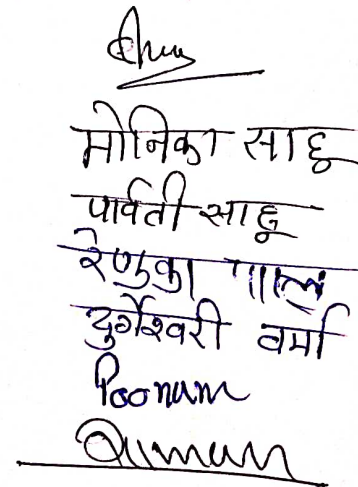 मोनिका साहू
पार्वती साहू
रेणुका पाल
दुर्गेश्वरी वर्मा
Poonam